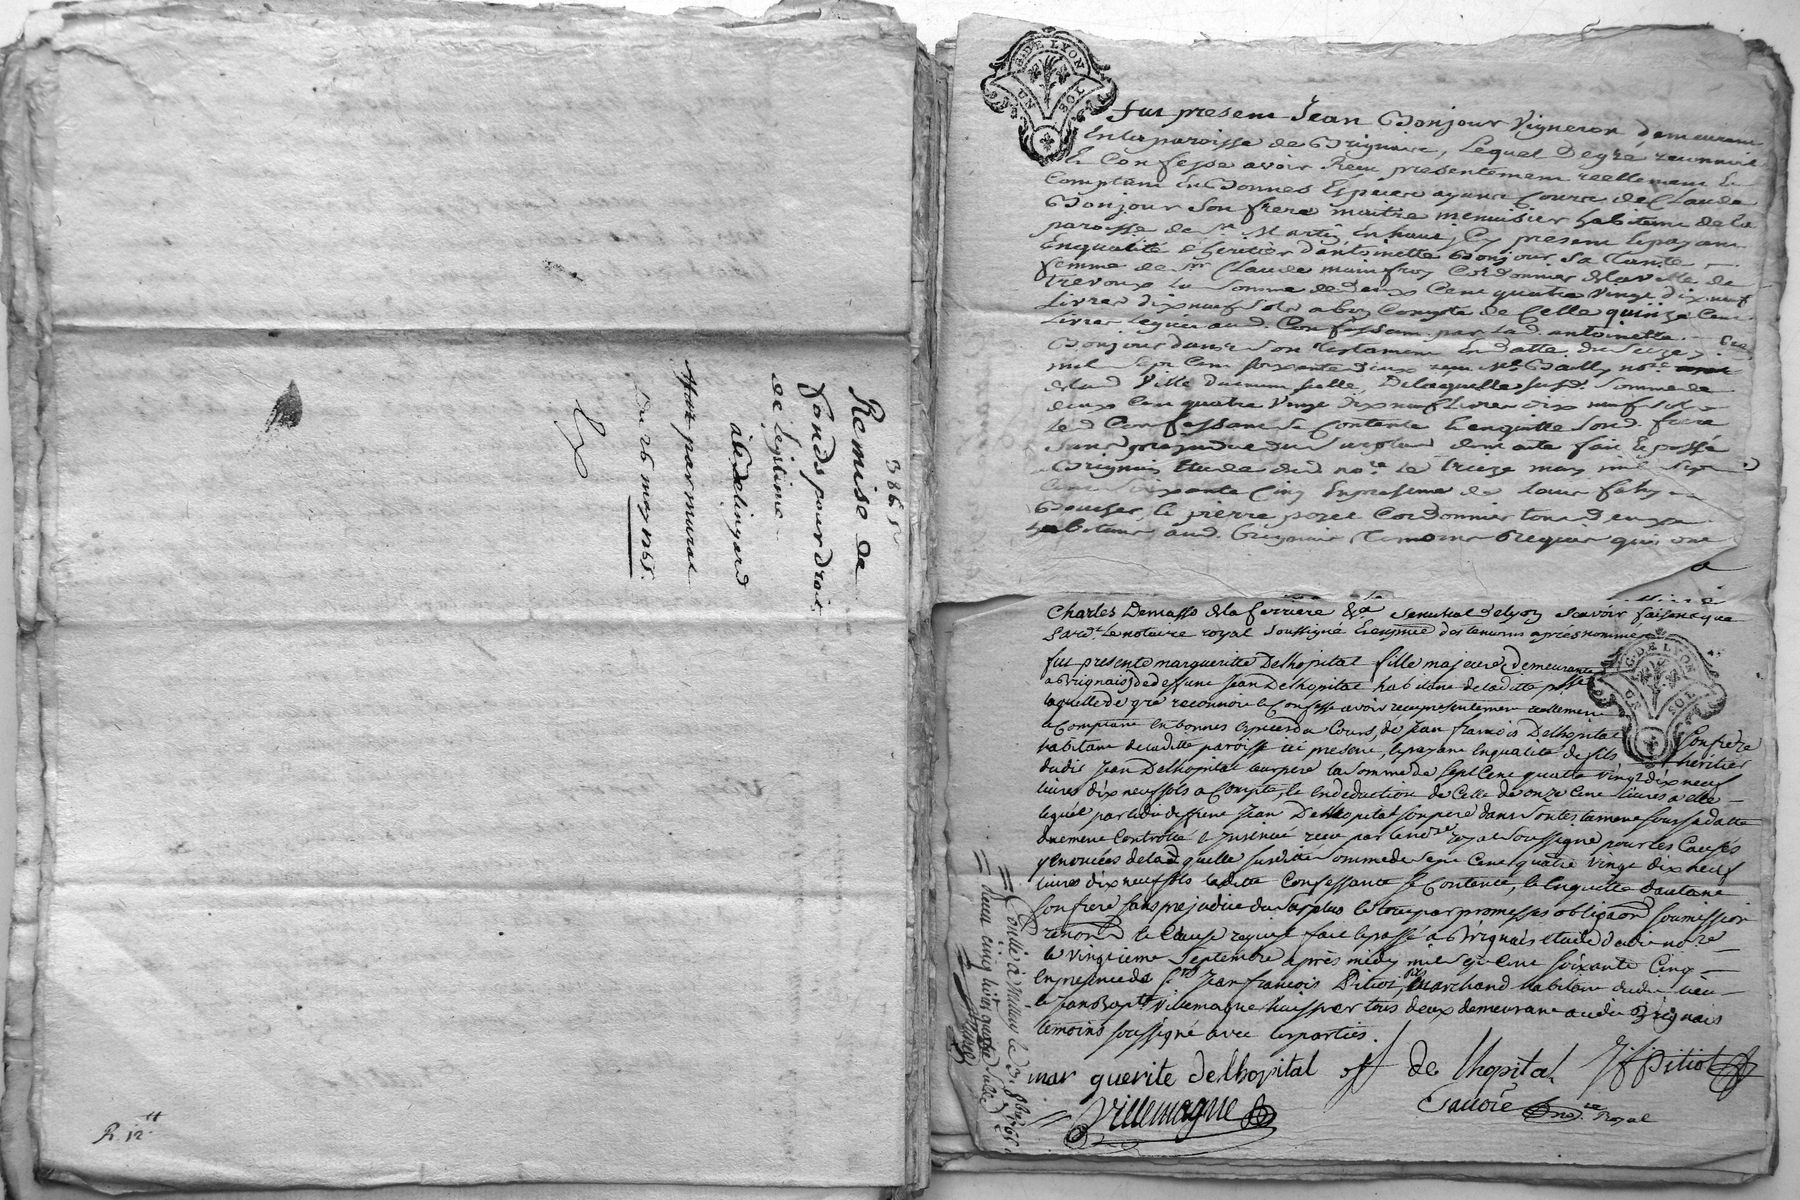 3865
Remise de
fonds pour droit
de l'église
à De
fait par murat
Du 26 may 1765.
R. 12 tt
G. DE LYON
UN SOL
fut present Jean Bonjour Vigneron demeurant
En la paroisse de Brignais, Lequel De gré reconnoit
Et Confesse avoir Receu presentement reellement Et
Comptant En Bonnes Especes ayant Cours de Claude
Bonjour Son frere maitre menuisier habitant de la
paroisse de St Martin En haut, Cy present Le payant
En qualité d'heritier d'antoinette Bonjour Sa Tante
femme de Sr Claude mainfroy Cordonnier de la Ville de
trevoux La Somme de deux Cent quatre Vingt dix neuf
Livres dix neuf Sols a bon Compte de Celle quinze Cent
Livres Leguée aud. Confessant par Lad. antoinette
Bonjour dans Son testament En datte du
mil Sept Cent soixante deux receu Me Bailly nore
de lad Ville Duement scellé, De laquelle susd. Somme de
deux Cent quatre Vingt dix neuf Livres dix neuf sols
Led Confessant se Contente Et enquitte Sond. frere
Sans prejudice du Surplus dont acte fait Et passé
a Brignais Etude dud nore Le treize may mil Sept
Cent Soixante Cinq En presence de
Boucher, & pierre pozet Cordonnier tous deux
habitans aud. Brignais temoins Requis qui ont
Charles Demasso de la ferriere & a Senechal de lyon scavoir faisons que
Pard. Le notaire royal soussigné En presence des temoins après nommés
fut presente margueritte Delhopital fille majeure demeurante
a Brignais de deffunt Jean Delhopital habitant de la ditte psse
laquelle de gré reconnoit & Confesse avoir receu presentement reellement
& Comptant en bonnes especes du Cours, de Jean francois Delhopital son frere
habitant de la ditte paroisse ici present, le payant En qualité de fils & heritier
dudit Jean Delhopital leur pere la somme de Sept Cent quatre vingt dix neuf
livres dix neuf sols a Compte, & En deduction de Celle de onze Cent livres a elle
leguée par ledit deffunt Jean Delhopital son pere dans son testament sous sa datte
duement Controllé & Insinué receu par le nore royal soussigné pour les Causes
y Enoncées de la quelle susditte somme de Sept Cent quatre vingt dix neuf
livres dix neuf sols la ditte Confessante se Contente, & En quitte d'autant
son frere sans prejudice du surplus & le tout par promesses obligaon soumission
renon & Clause requise fait & passé a Brignais etude dudit nore
le vingtieme Septembre après midy mil sept Cent soixante Cinq
En presence de Srs Jean francois Pitiot Marchand habitant dudit lieu
& Jean Bapt Villemagne huissier tous deux demeurant audit Brignais
temoins soussigné avec les parties.
G. DE LYON
SOL
marguerite delhopital
jf de lhopital
Jf Pitiot
Villemagne
Savoie nore Royal
Conllé à Millery le 3. 8bre 1765
Receu cinq livres quatre sols